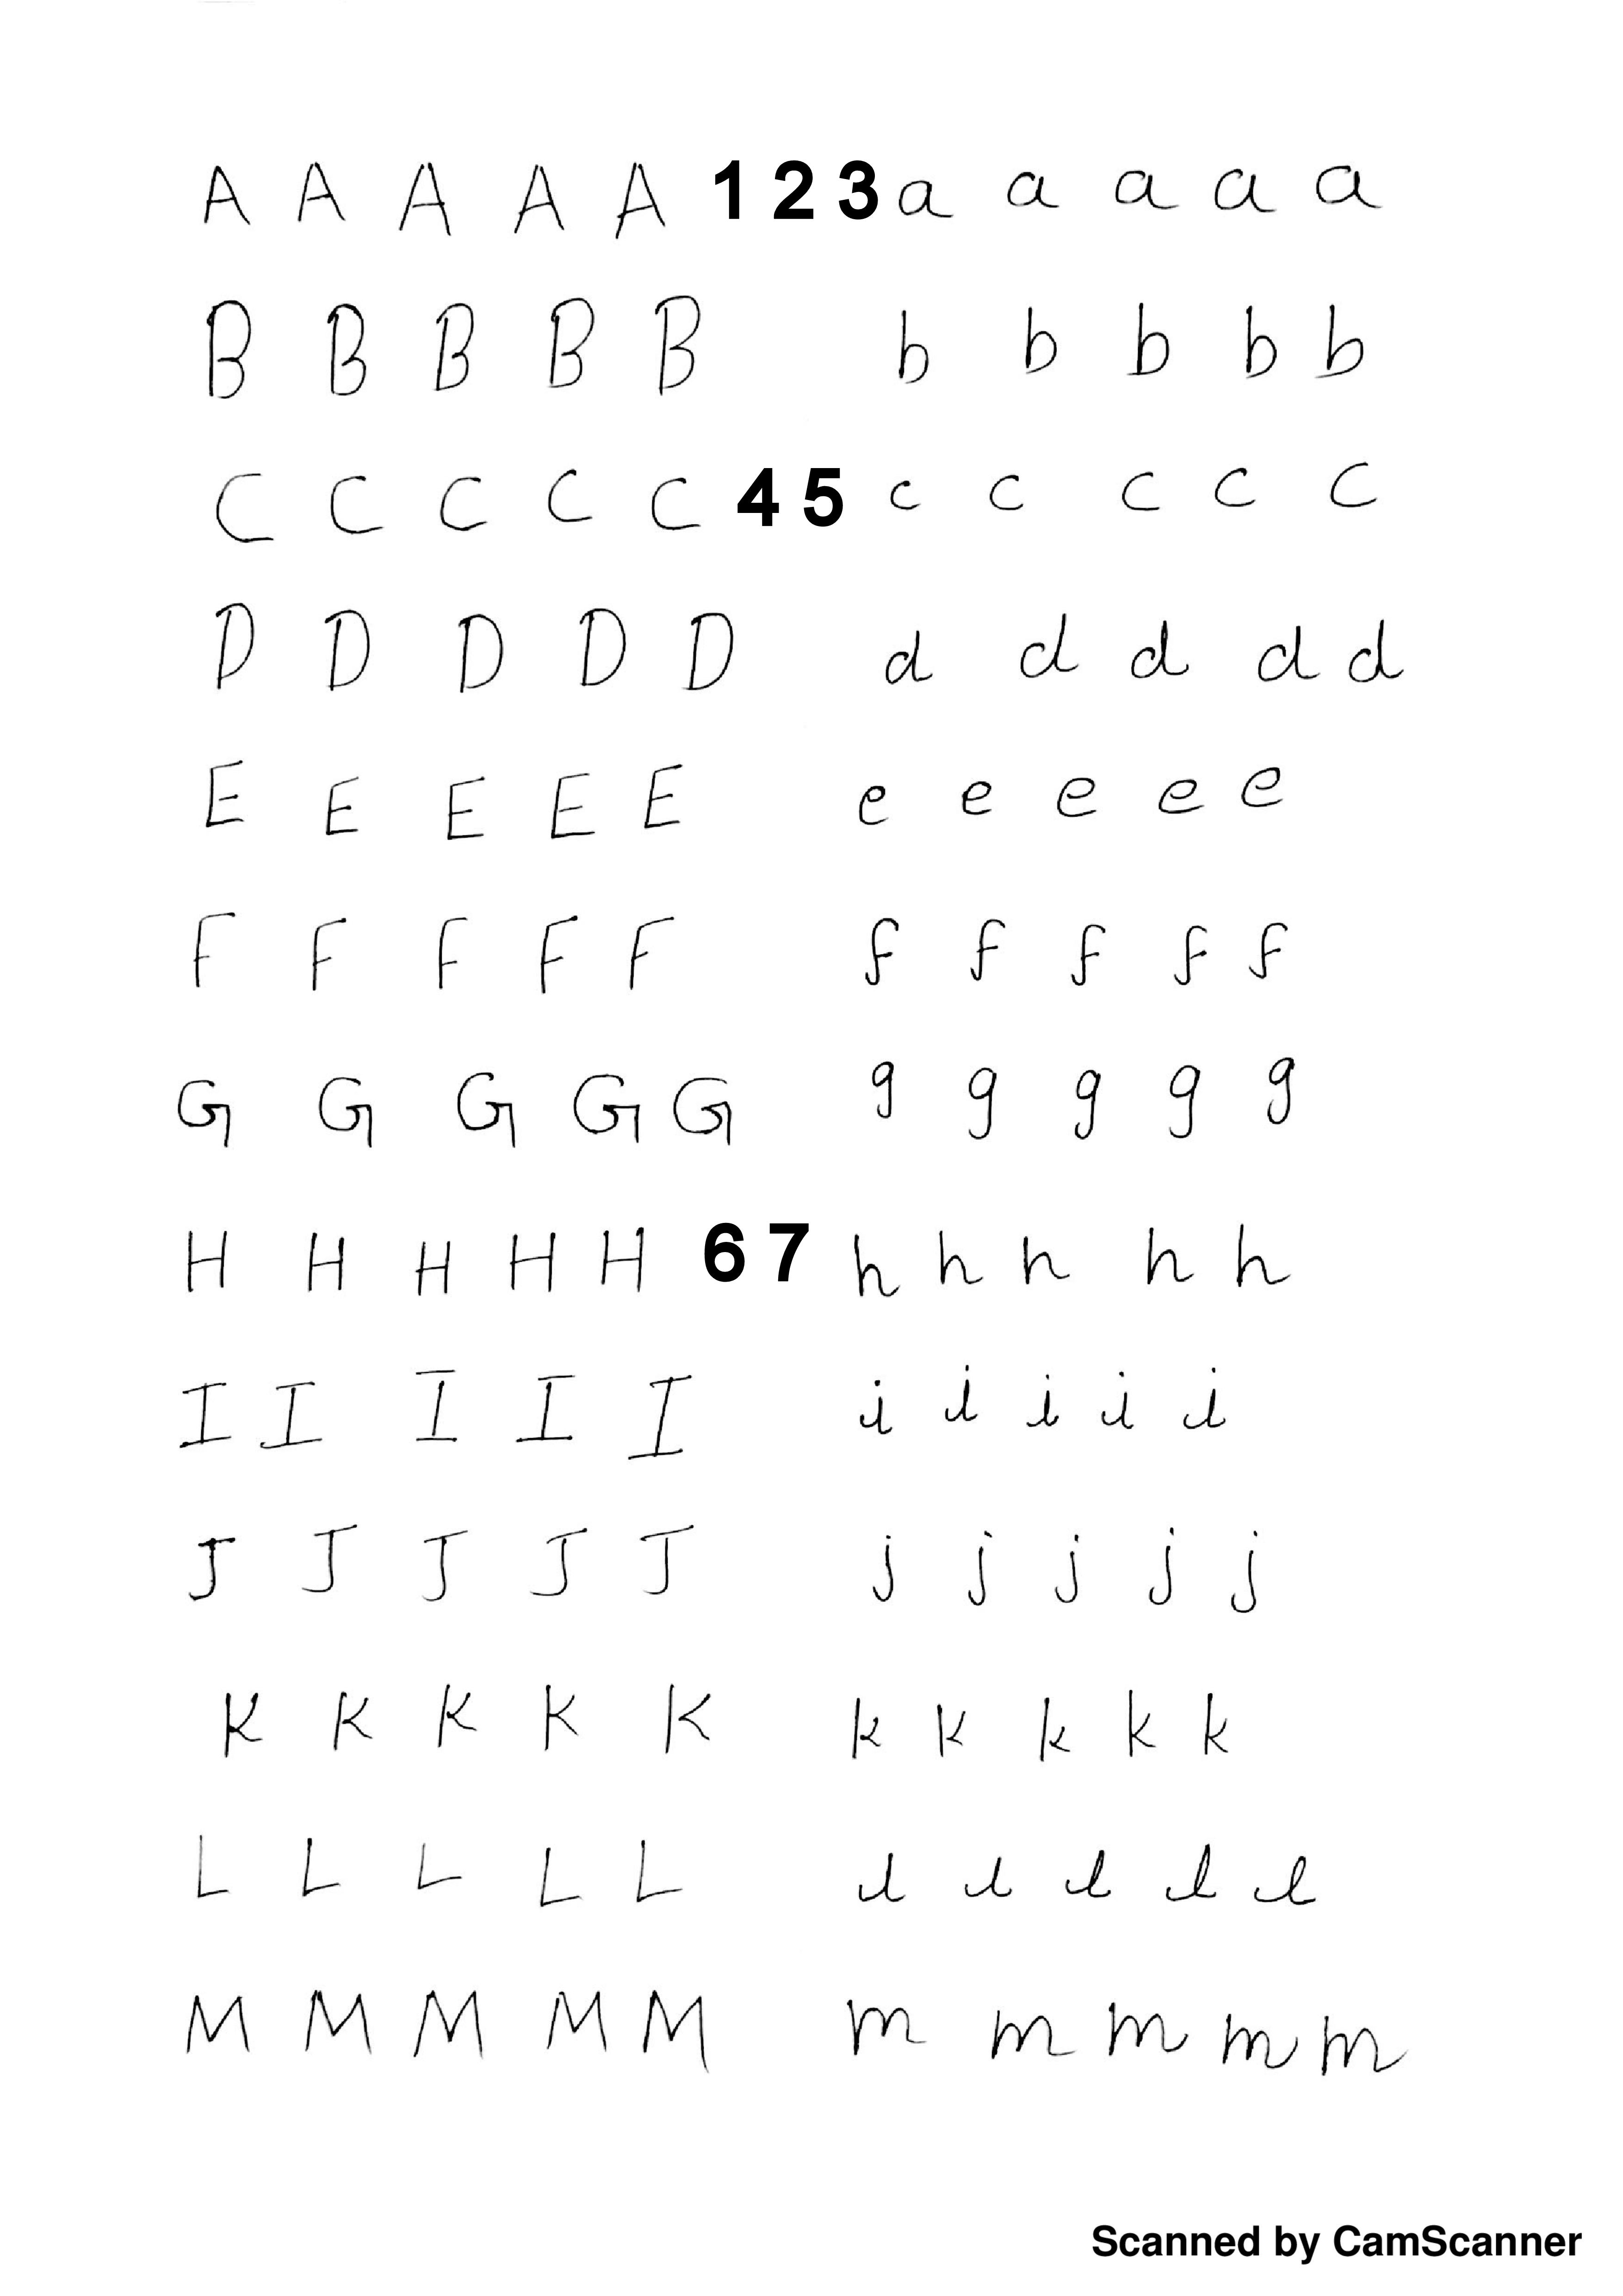 A A A A A 1 2 3 a a a a a
B B B B B b b b b b
C C C C C 4 5 c c c c c
D D D D D d d d d d
E E E E E e e e e e
F F F F F f f f f f
G G G G G g g g g g
H H H H H 6 7 h h h h h
I I I I I i i i i i
J J J J J j j j j j
K K K K K k k k k k
L L L L L l l l l l
M M M M M m m m m m
Scanned by CamScanner